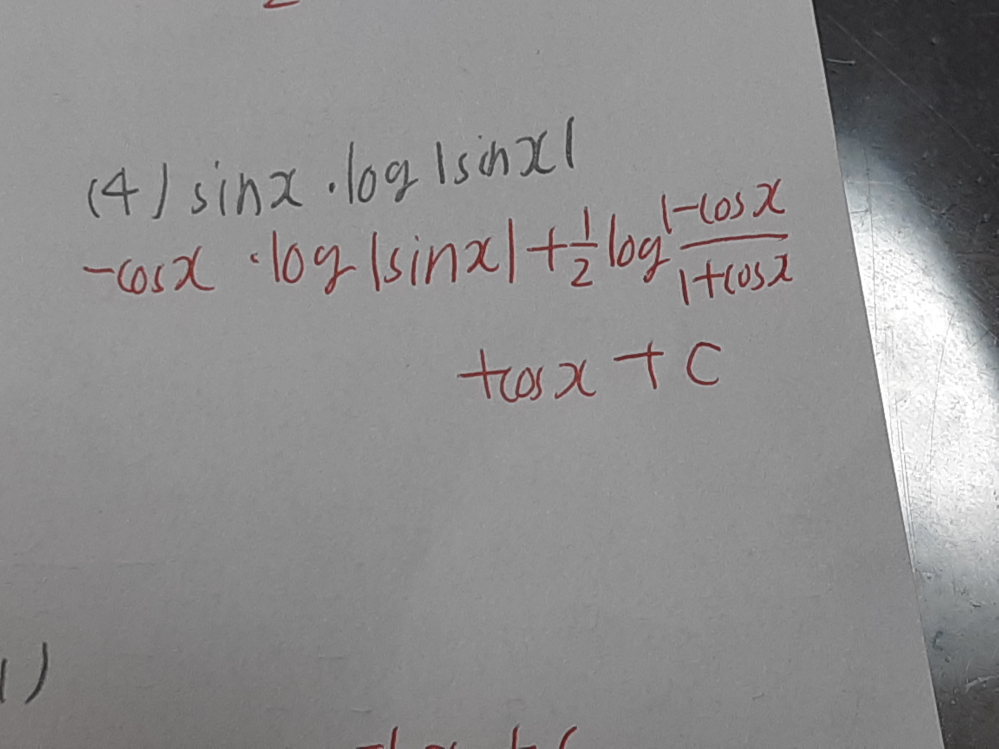 (4) sinx・log|sinx|
-cosx・log|sinx|+1/2 log (1-cosx)/(1+cosx)
+cosx + C
1)